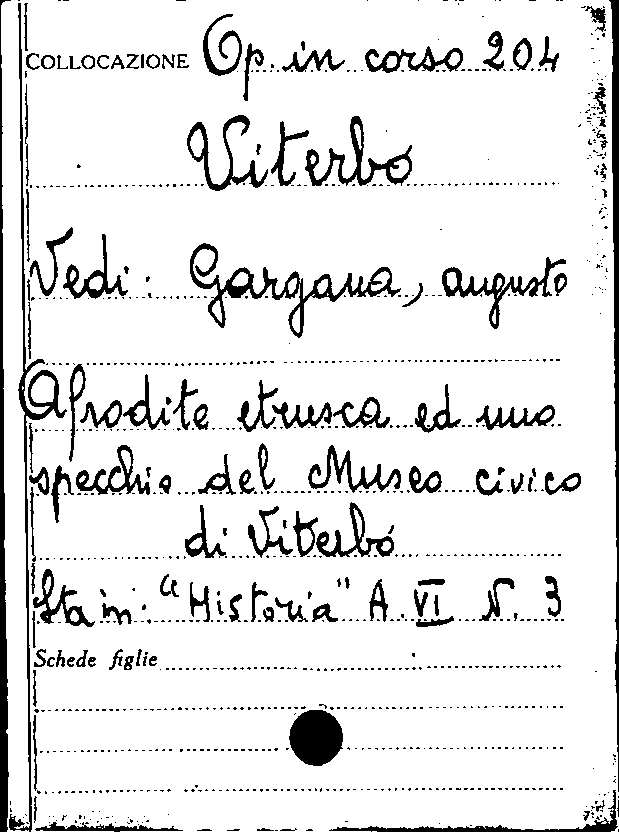 COLLOCAZIONE Op. in corso 204
Viterbo
Vedi: Gargana, augusto
Afrodite etrusca ed uno
specchio del Museo civico
di Viterbo
Sta in: "Historia" A. VI N. 3
Schede figlie